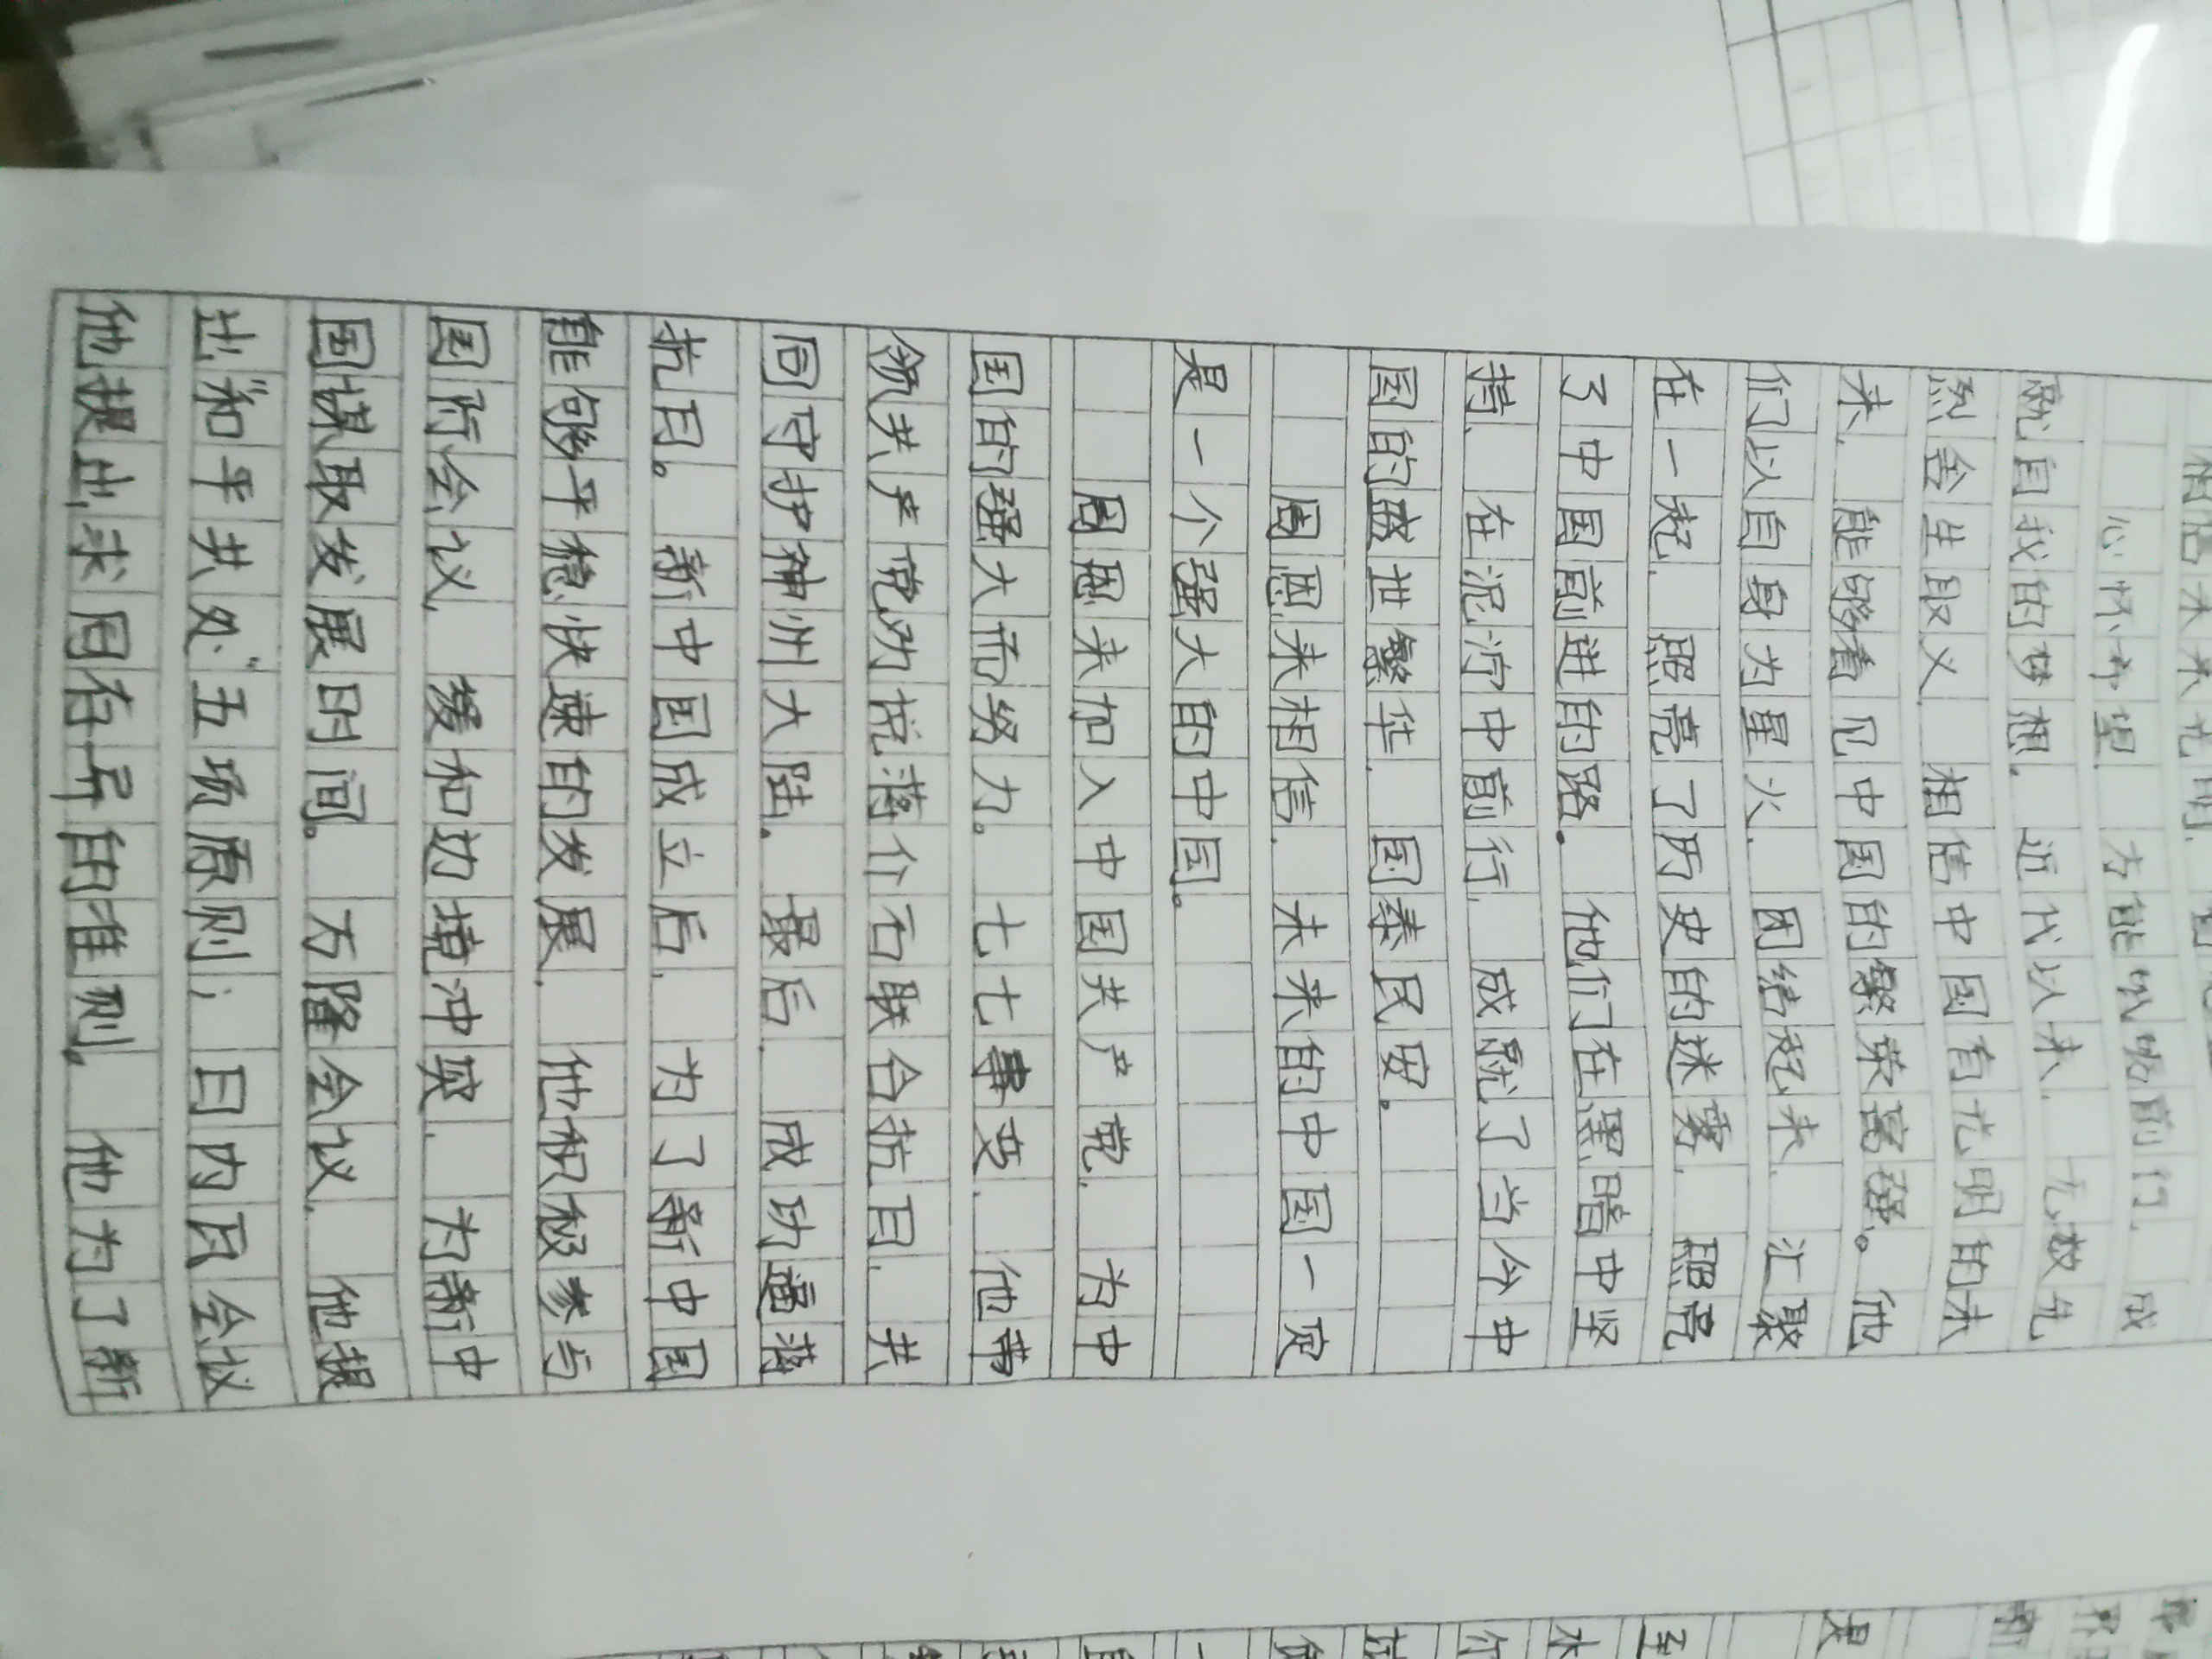 相信未来光明
心怀希望，方能砥砺前行，成
就自我的梦想。近代以来，无数先
烈舍生取义，相信中国有光明的未
来，能够看见中国的繁荣富强。他
们以自身为星火，团结起来，汇聚
在一起，照亮了历史的迷雾，照亮
了中国前进的路。他们在黑暗中坚
持，在泥泞中前行，成就了当今中
国的盛世繁华，国泰民安。
周恩来相信，未来的中国一定
是一个强大的中国。
周恩来加入中国共产党，为中
国的强大而努力。七七事变，他带
领共产党劝说蒋介石联合抗日，共
同守护神州大陆。最后，成功逼蒋
抗日。新中国成立后，为了新中国
能够平稳快速的发展，他积极参与
国际会议，缓和边境冲突，为新中
国谋取发展时间。万隆会议，他提
出“和平共处”五项原则；日内瓦会议
他提出求同存异的准则。他为了新